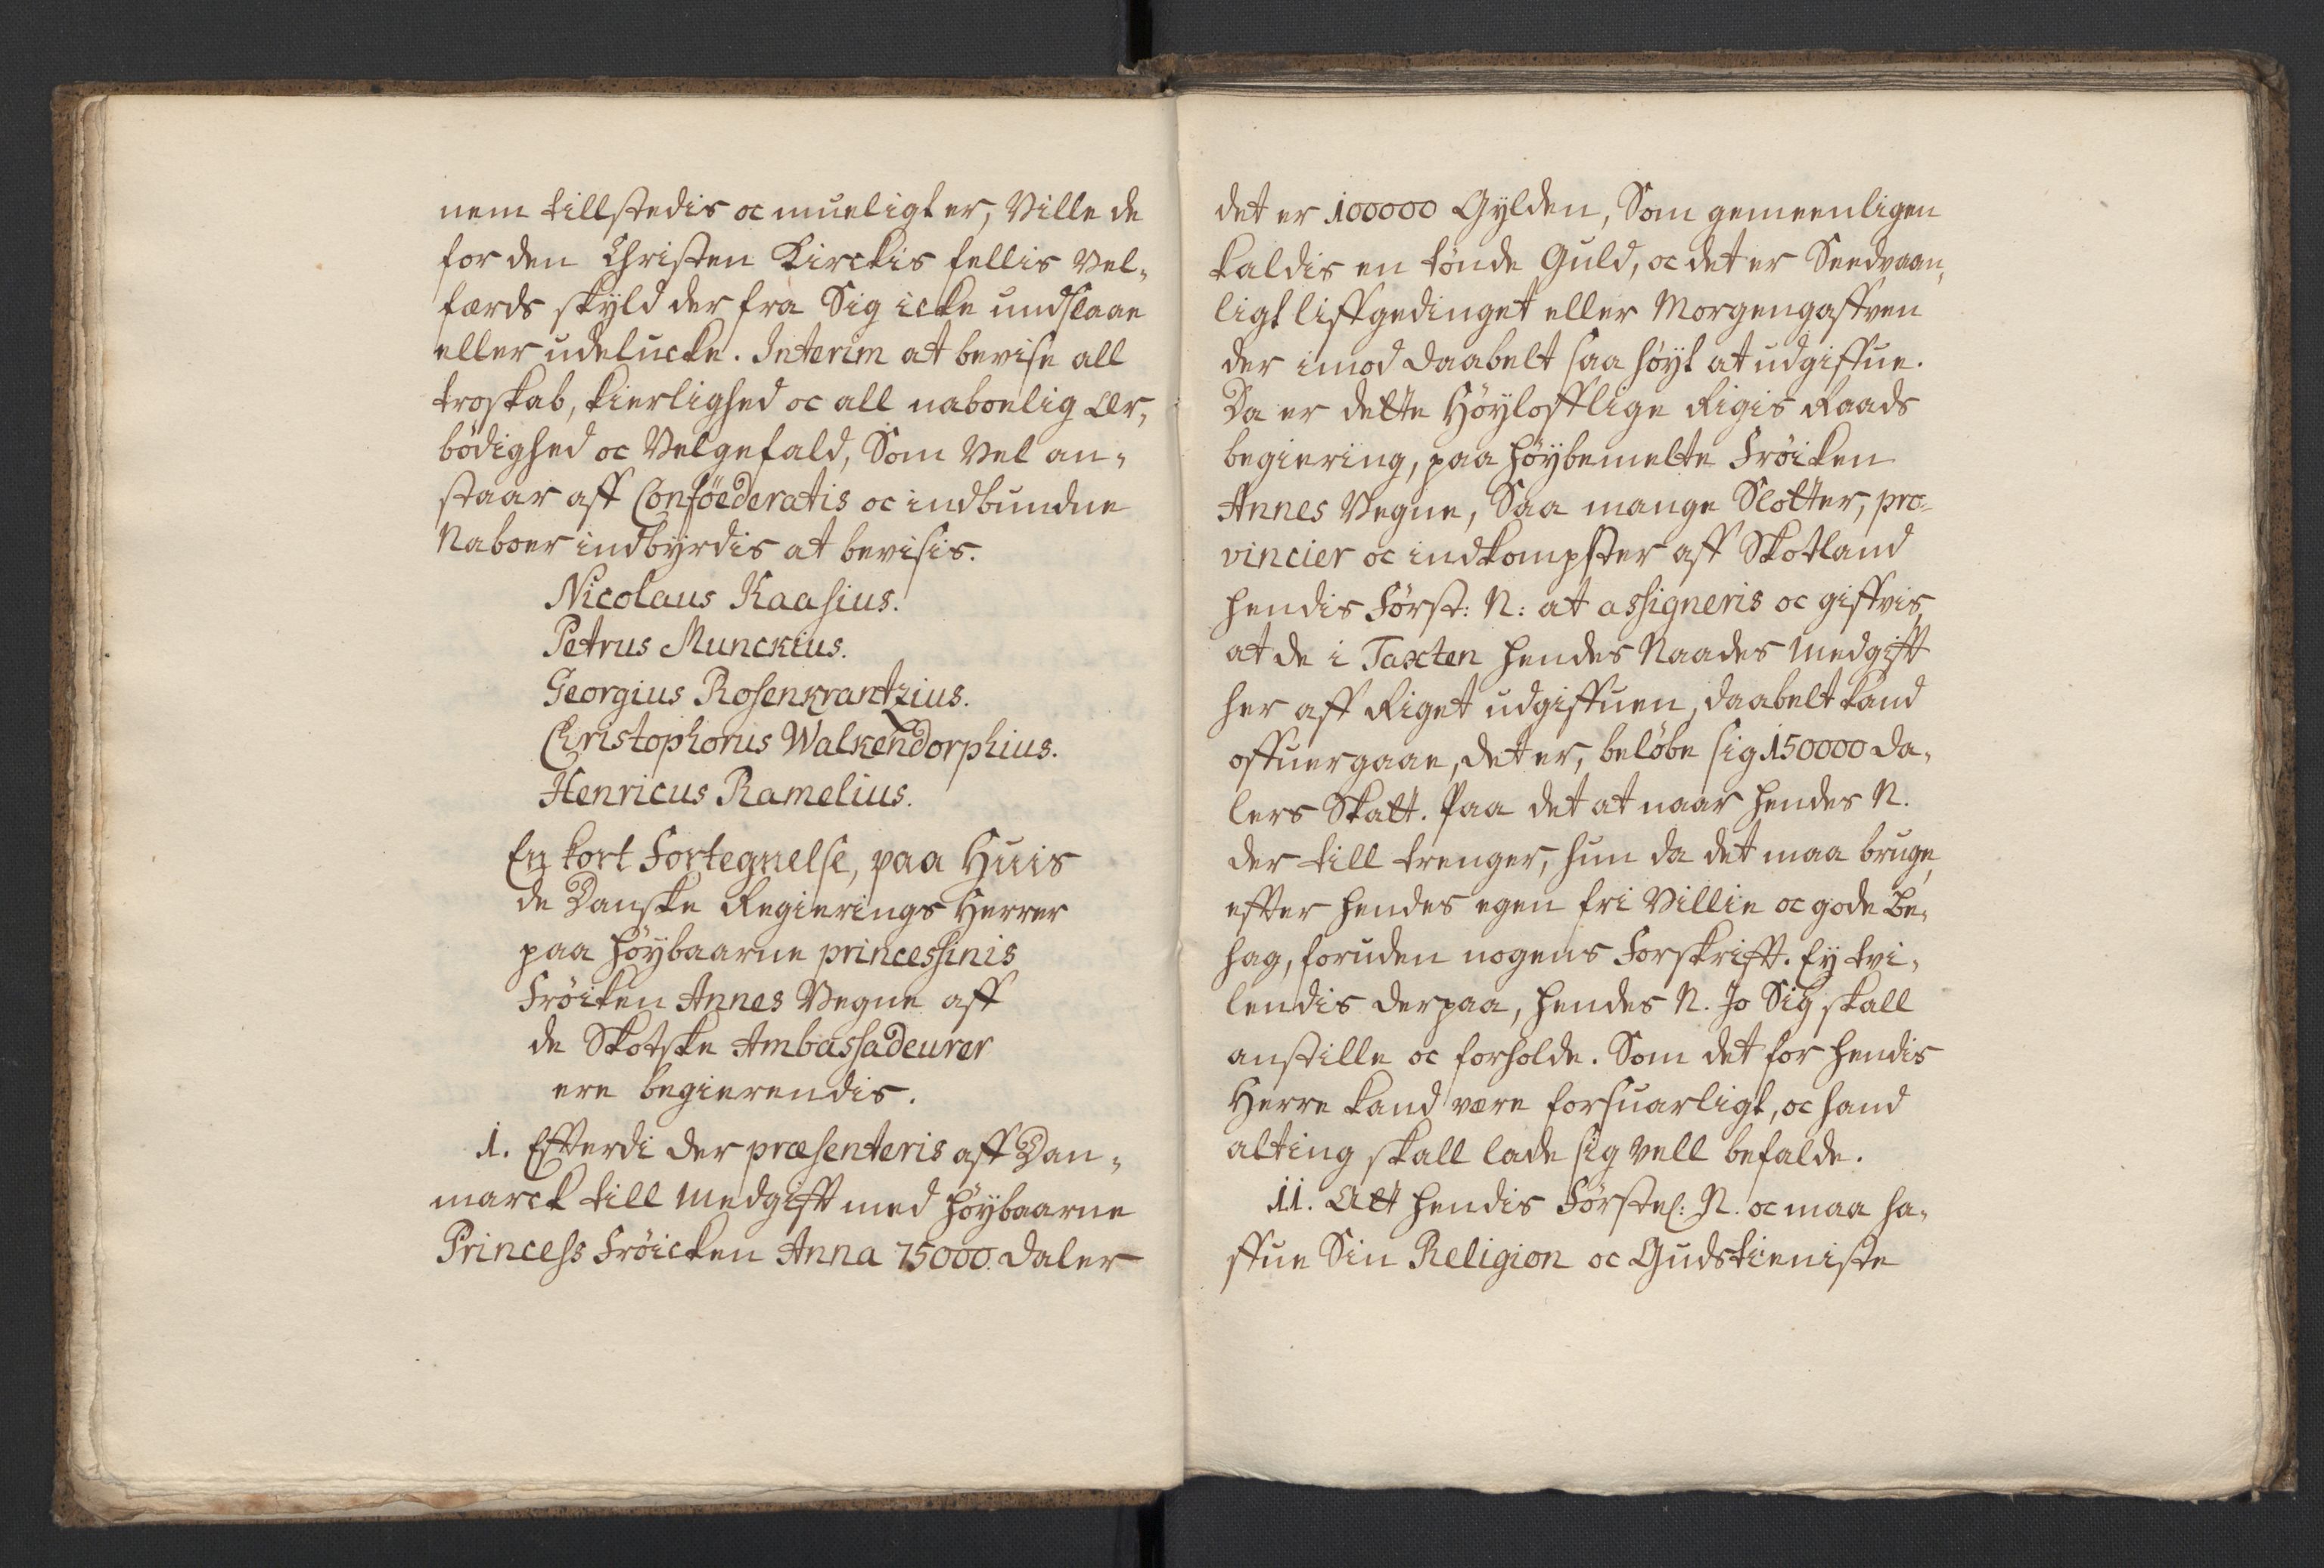 nem tillstedis oc mueligt er, Ville de
for den Christen Kirckis fellis Vel-
færds skyld der fra Sig icke undslaae
eller udelucke. Interim at bevise all
troskab, kierlighed oc all naboelig Ær-
bödighed oc Velgefald, Som Vel an-
staar aff Conföederatis oc indbundne
Naboer indbyrdis at bevisis.
Nicolaus Kaasius.
Petrus Munckius.
Georgius Rosenkrantzius.
Christophorus Walkendorphius.
Henricus Ramelius.
En kort Fortegnelse, paa Huis
de Danske Regierings Herrer
paa höybaarne princessinis
Fröiken Annes Vegne aff
de Skotske Ambassadeurer
ere begierendis.
1. Efftterdi der præsenteris aff Dan-
marck till Medgifft med höybaarne
Princess Fröicken Anna 75000. Daler
det er 100000 Gylden, Som gemeenligen
kaldis en tönde Guld, oc det er Seedvaan-
ligt liffgedinget eller Morgengaffven
der imod daabelt saa höyt at udgiffue.
Da er dette Höylofflige Rigis Raads
begiering, paa höybemelte Fröiken
Annes Vegne, Saa mange Slotter, pro-
vincier oc indkompster aff Skotland
hendis Först: N: at assigneris oc giffvis,
at de i Taxten hendes Naades Medgifft
her aff Riget udgiffuen, daabelt kand
offuergaae, det er, belöbe sig 150000 da-
lers Skatt. Paa det at naar hendes N.
der till trenger, hun da det maa bruge,
effter hendes egen fri Villie oc gode Be-
hag, foruden nogens Forskrifft. Ey tvi-
lendis derpaa, hendes N. Jo Sig skall
anstille oc forholde. Som det for hendis
Herre kand være forsuarligt, oc hand
alting skall lade sig vell befalde.
11. Att hendis Förstel: N. oc maa ha-
ffue Sin Religion oc Gudstieniste